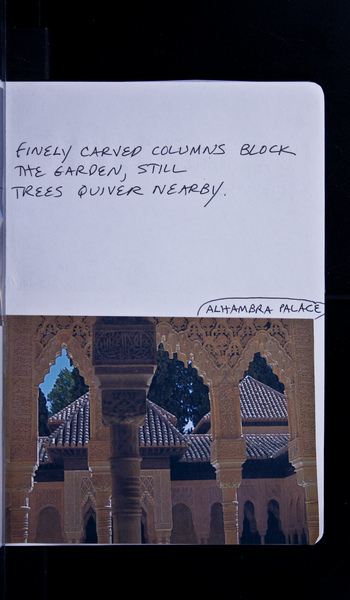 FINELY CARVED COLUMNS BLOCK
THE GARDEN, STILL
TREES QUIVER NEARBY.
ALHAMBRA PALACE